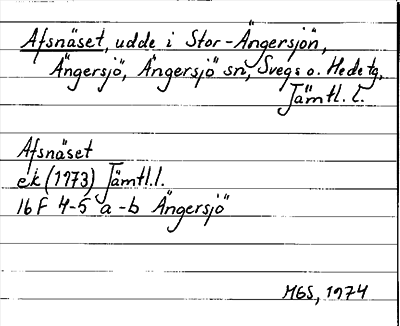 Afsnäset, udde i Stor-Ängersjön,
Ängersjö, Ängersjö sn, Svegs o. Hede tg,
Jämtl. l.
Afsnäset
ek (1973) Jämtl.l.
16 F 4-5 a-b Ängersjö
MGS, 1974